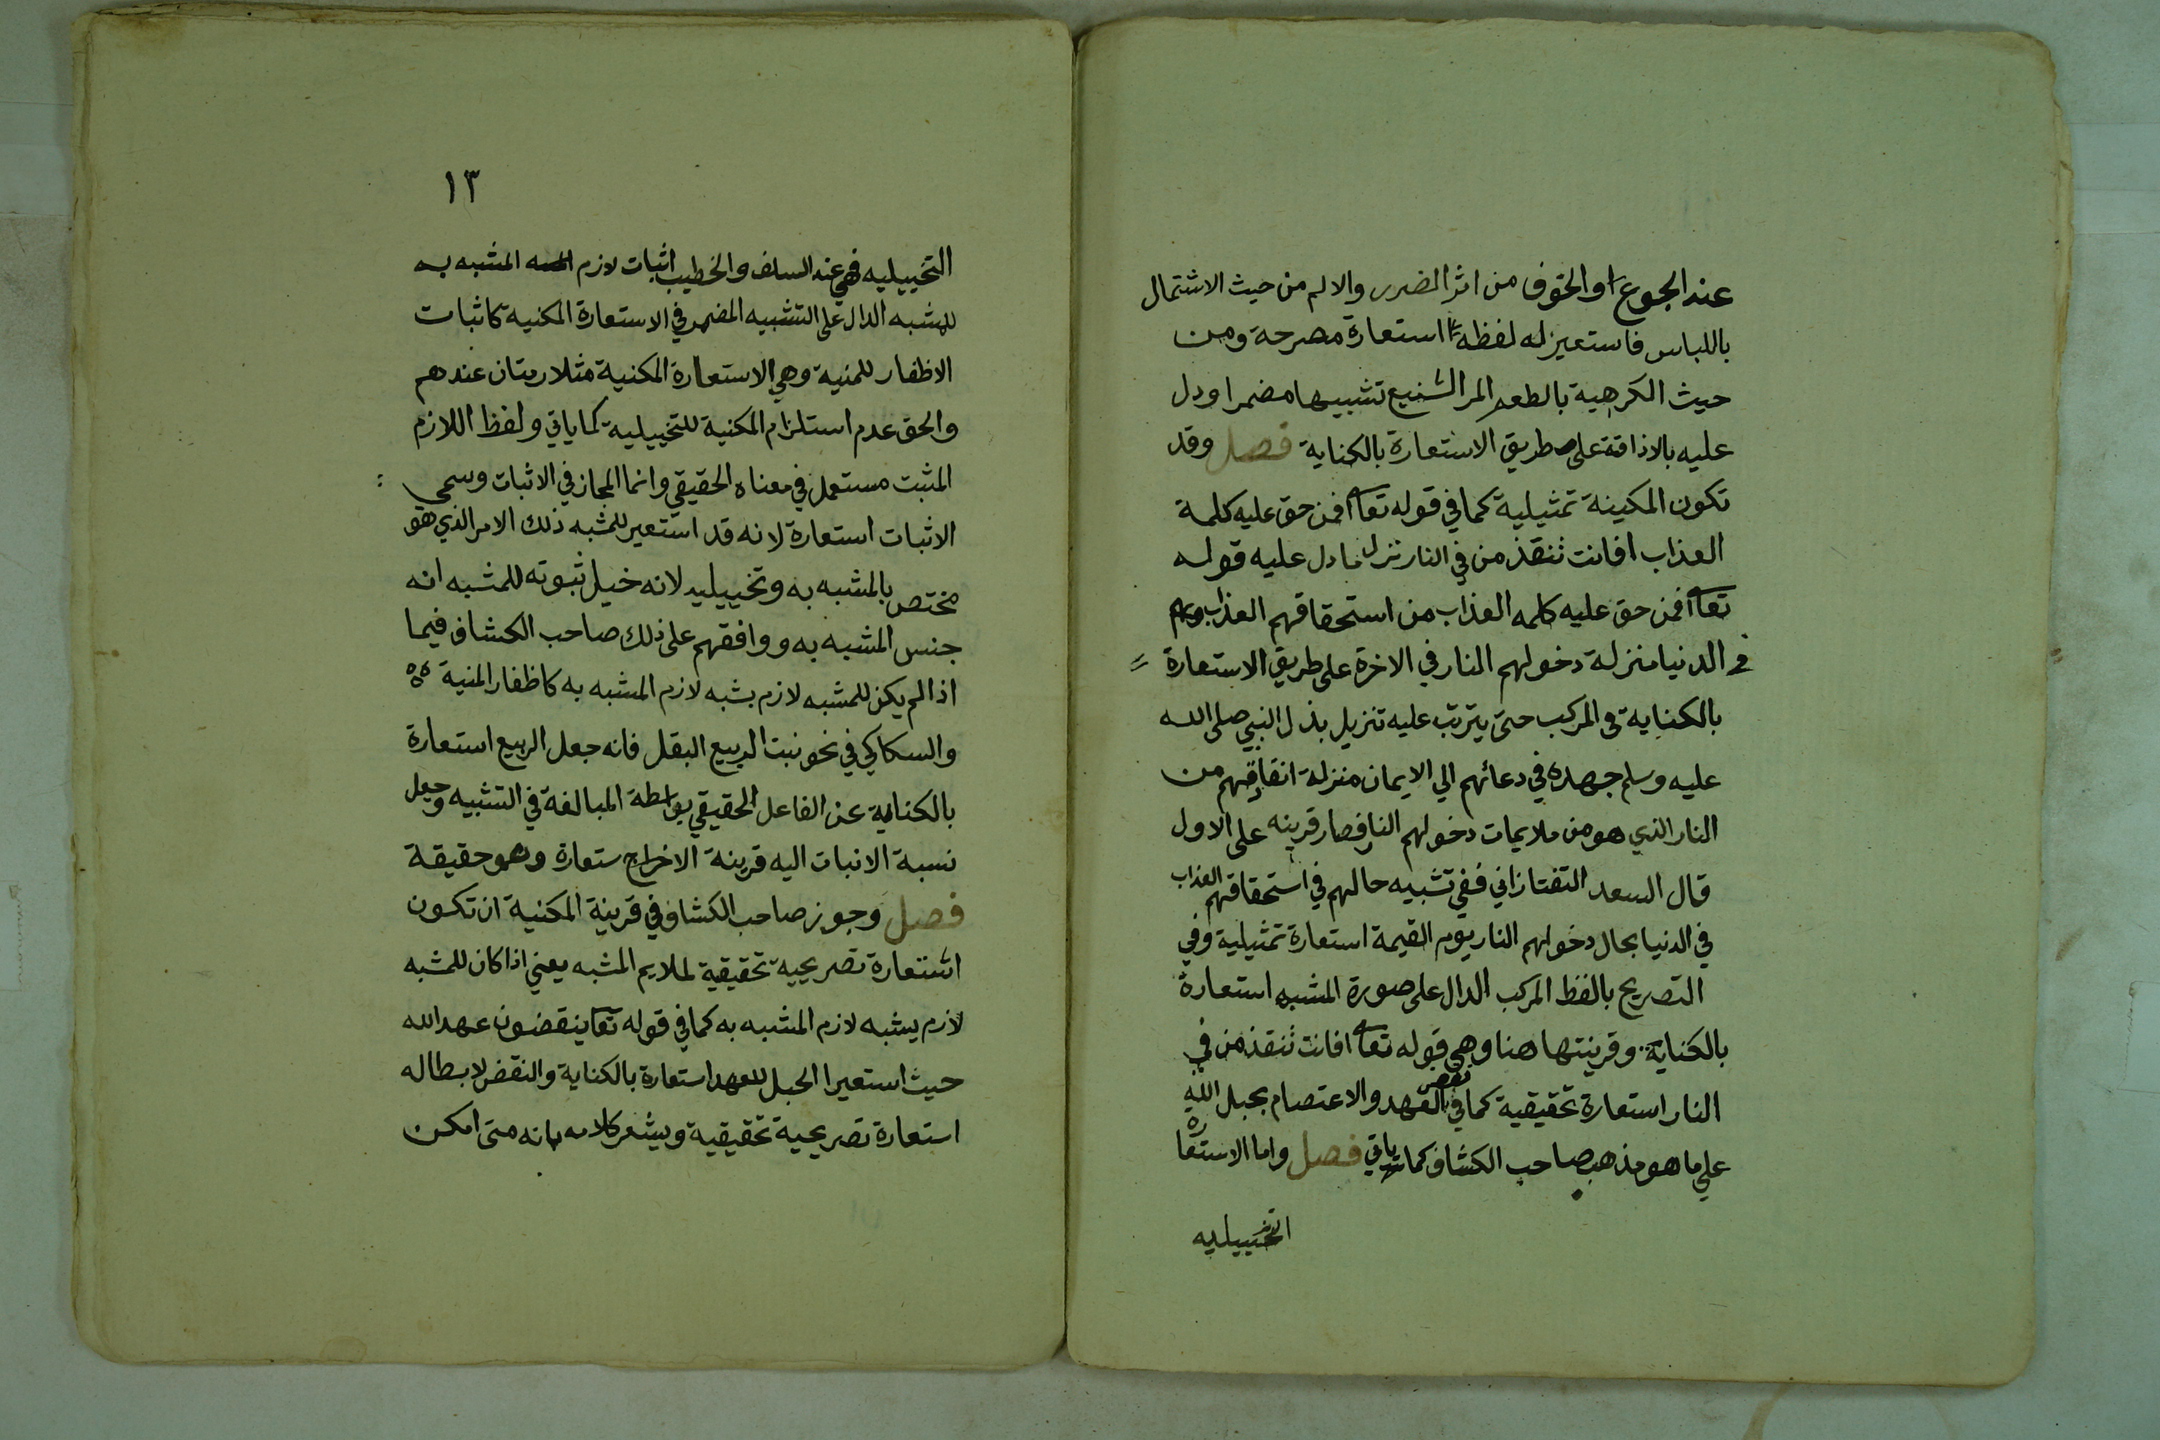 عند الجوع او الخوف من اثر الضرر والالم من حيث الاشتمال
باللباس فاستعير له لفظه استعارة مصرحة ومن
حيث الكرهية بالطعم المر الشنيع تشبيها مضمرا ودل
عليه بالاذاقة على طريق الاستعارة بالكناية فصل وقد
تكون المكينة تمثيلية كما في قوله تعا افمن حق عليه كلمة
العذاب افانت تنقذ من في النار نزل ما دل عليه قوله
تعا افمن حق عليه كلمه العذاب من استحقاقهم العذاب وهم
في الدنيا منزلة دخولهم النار في الاخرة على طريق الاستعارة
بالكناية في المركب حتى يترتب عليه تنزيل بذل النبي صلى الله
عليه وسلم جهده في دعائهم الي الايمان منزلة انقاذهم من
النار الذي هو من ملايمات دخولهم النار فصار قرينه على الاول
قال السعد التفتازاني ففي تشبيه حالهم في استحقاقهم العذاب
في الدنيا بحال دخولهم النار يوم القيمة استعارة تمثيلية وفي
التصريح بالفظ المركب الدال على صورة المشبه استعارة
بالكناية وقرينتها هنا وهي قوله تعا افانت تنقذ من في
النار استعارة تحقيقية كما في نقض العهد والاعتصام بحبل الله
علي ما هو مذهب صاحب الكشاف كما ياتي فصل واما الاستعارة
التخييليه
١٣
التخييليه فهي عند السلف والخطيب اثبات لازم المشبه به
للمشبه الدال على التشبيه المضمر في الاستعارة المكنية كاثبات
الاظفار للمنية وهي الاستعارة المكنية متلازمتان عندهم
والحق عدم استلزام المكنية للتخييلية كما ياتي ولفظ اللازم
المثبت مستعمل في معناه الحقيقي وانما المجاز في الاثبات وسمي
الاثبات استعارة لانه قد استعير للمشبه ذلك الامر الذي هو
مختص بالمشبه به وتخييليه لانه خيل ثبوته للمشبه انه
جنس المشبه به ووافقهم على ذلك صاحب الكشاف فيما
اذا لم يكن للمشبه لازم يشبه لازم المشبه به كاظفار المنية
والسكاكي في نحو نبت الربيع البقل فانه جعل الربيع استعارة
بالكناية عن الفاعل الحقيقي بواسطة المبالغة في التشبيه وجعل
نسبة الانبات اليه قرينة الاستعارة وهو حقيقة
فصل وجوز صاحب الكشاف في قرينة المكنية ان تكون
استعارة تصريحية تحقيقية لملايم المشبه يعني اذا كان للمشبه
لازم يشبه لازم المشبه به كما في قوله تعا ينقضون عهد الله
حيث استعير الحبل للعهد استعارة بالكناية والنقض لابطاله
استعارة تصريحية تحقيقية ويشعر كلامه بانه متى امكن